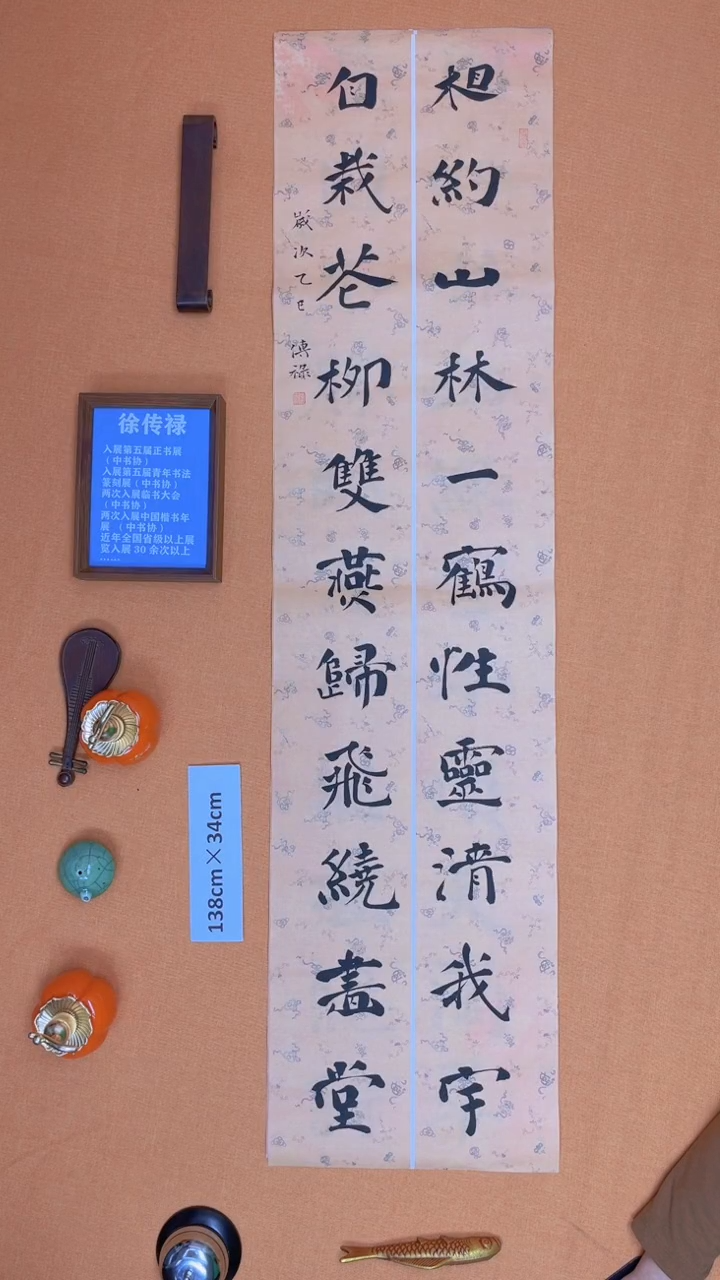 相約山林一鶴性靈清我宇
自栽花柳雙燕歸飛繞畫堂
歲次乙巳 傳祿
徐传禄
入展第五届正书展
（中书协）
入展第五届青年书法
篆刻展（中书协）
两次入展临书大会
（中书协）
两次入展中国楷书年
展 （中书协）
近年全国省级以上展
览入展 30 余次以上
......
138cm×34cm